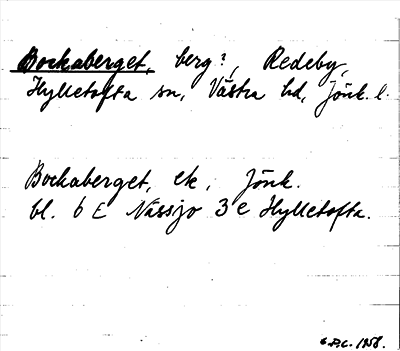 Bockaberget, berg?, Redeby,
Hylletofta sn, Västra hd, Jönk. l.
Bockaberget, ek, Jönk.
bl. 6 E Nässjö 3 e Hylletofta.
1958.